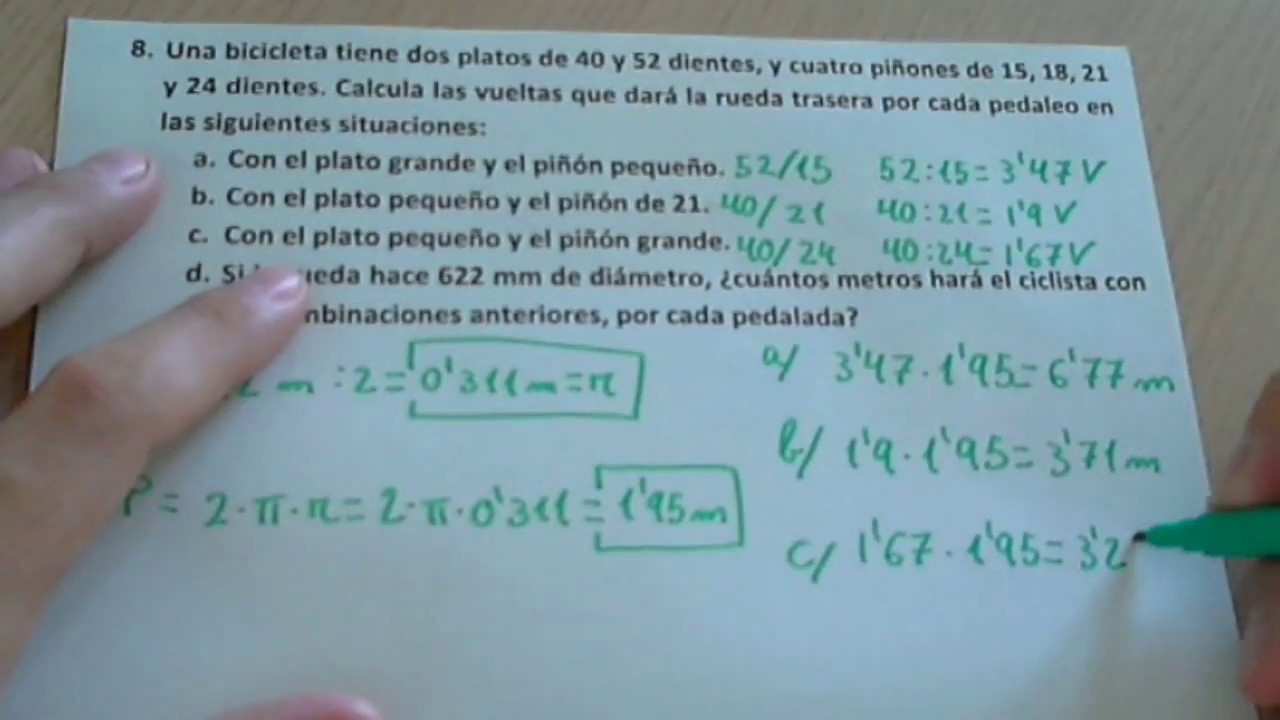 8. Una bicicleta tiene dos platos de 40 y 52 dientes, y cuatro piñones de 15, 18, 21
y 24 dientes. Calcula las vueltas que dará la rueda trasera por cada pedaleo en
las siguientes situaciones:
a. Con el plato grande y el piñón pequeño. 52/15 52:15=3'47 V
b. Con el plato pequeño y el piñón de 21. 40/21 40:21=1'9 V
c. Con el plato pequeño y el piñón grande. 40/24 40:24=1'67 V
d. Si ueda hace 622 mm de diámetro, ¿cuántos metros hará el ciclista con
mbinaciones anteriores, por cada pedalada?
m :2= 0'311m=r
a/ 3'47·1'95=6'77m
b/ 1'9·1'95=3'71m
P= 2·π·r=2·π·0'311= 1'95m
c/ 1'67·1'95=3'2